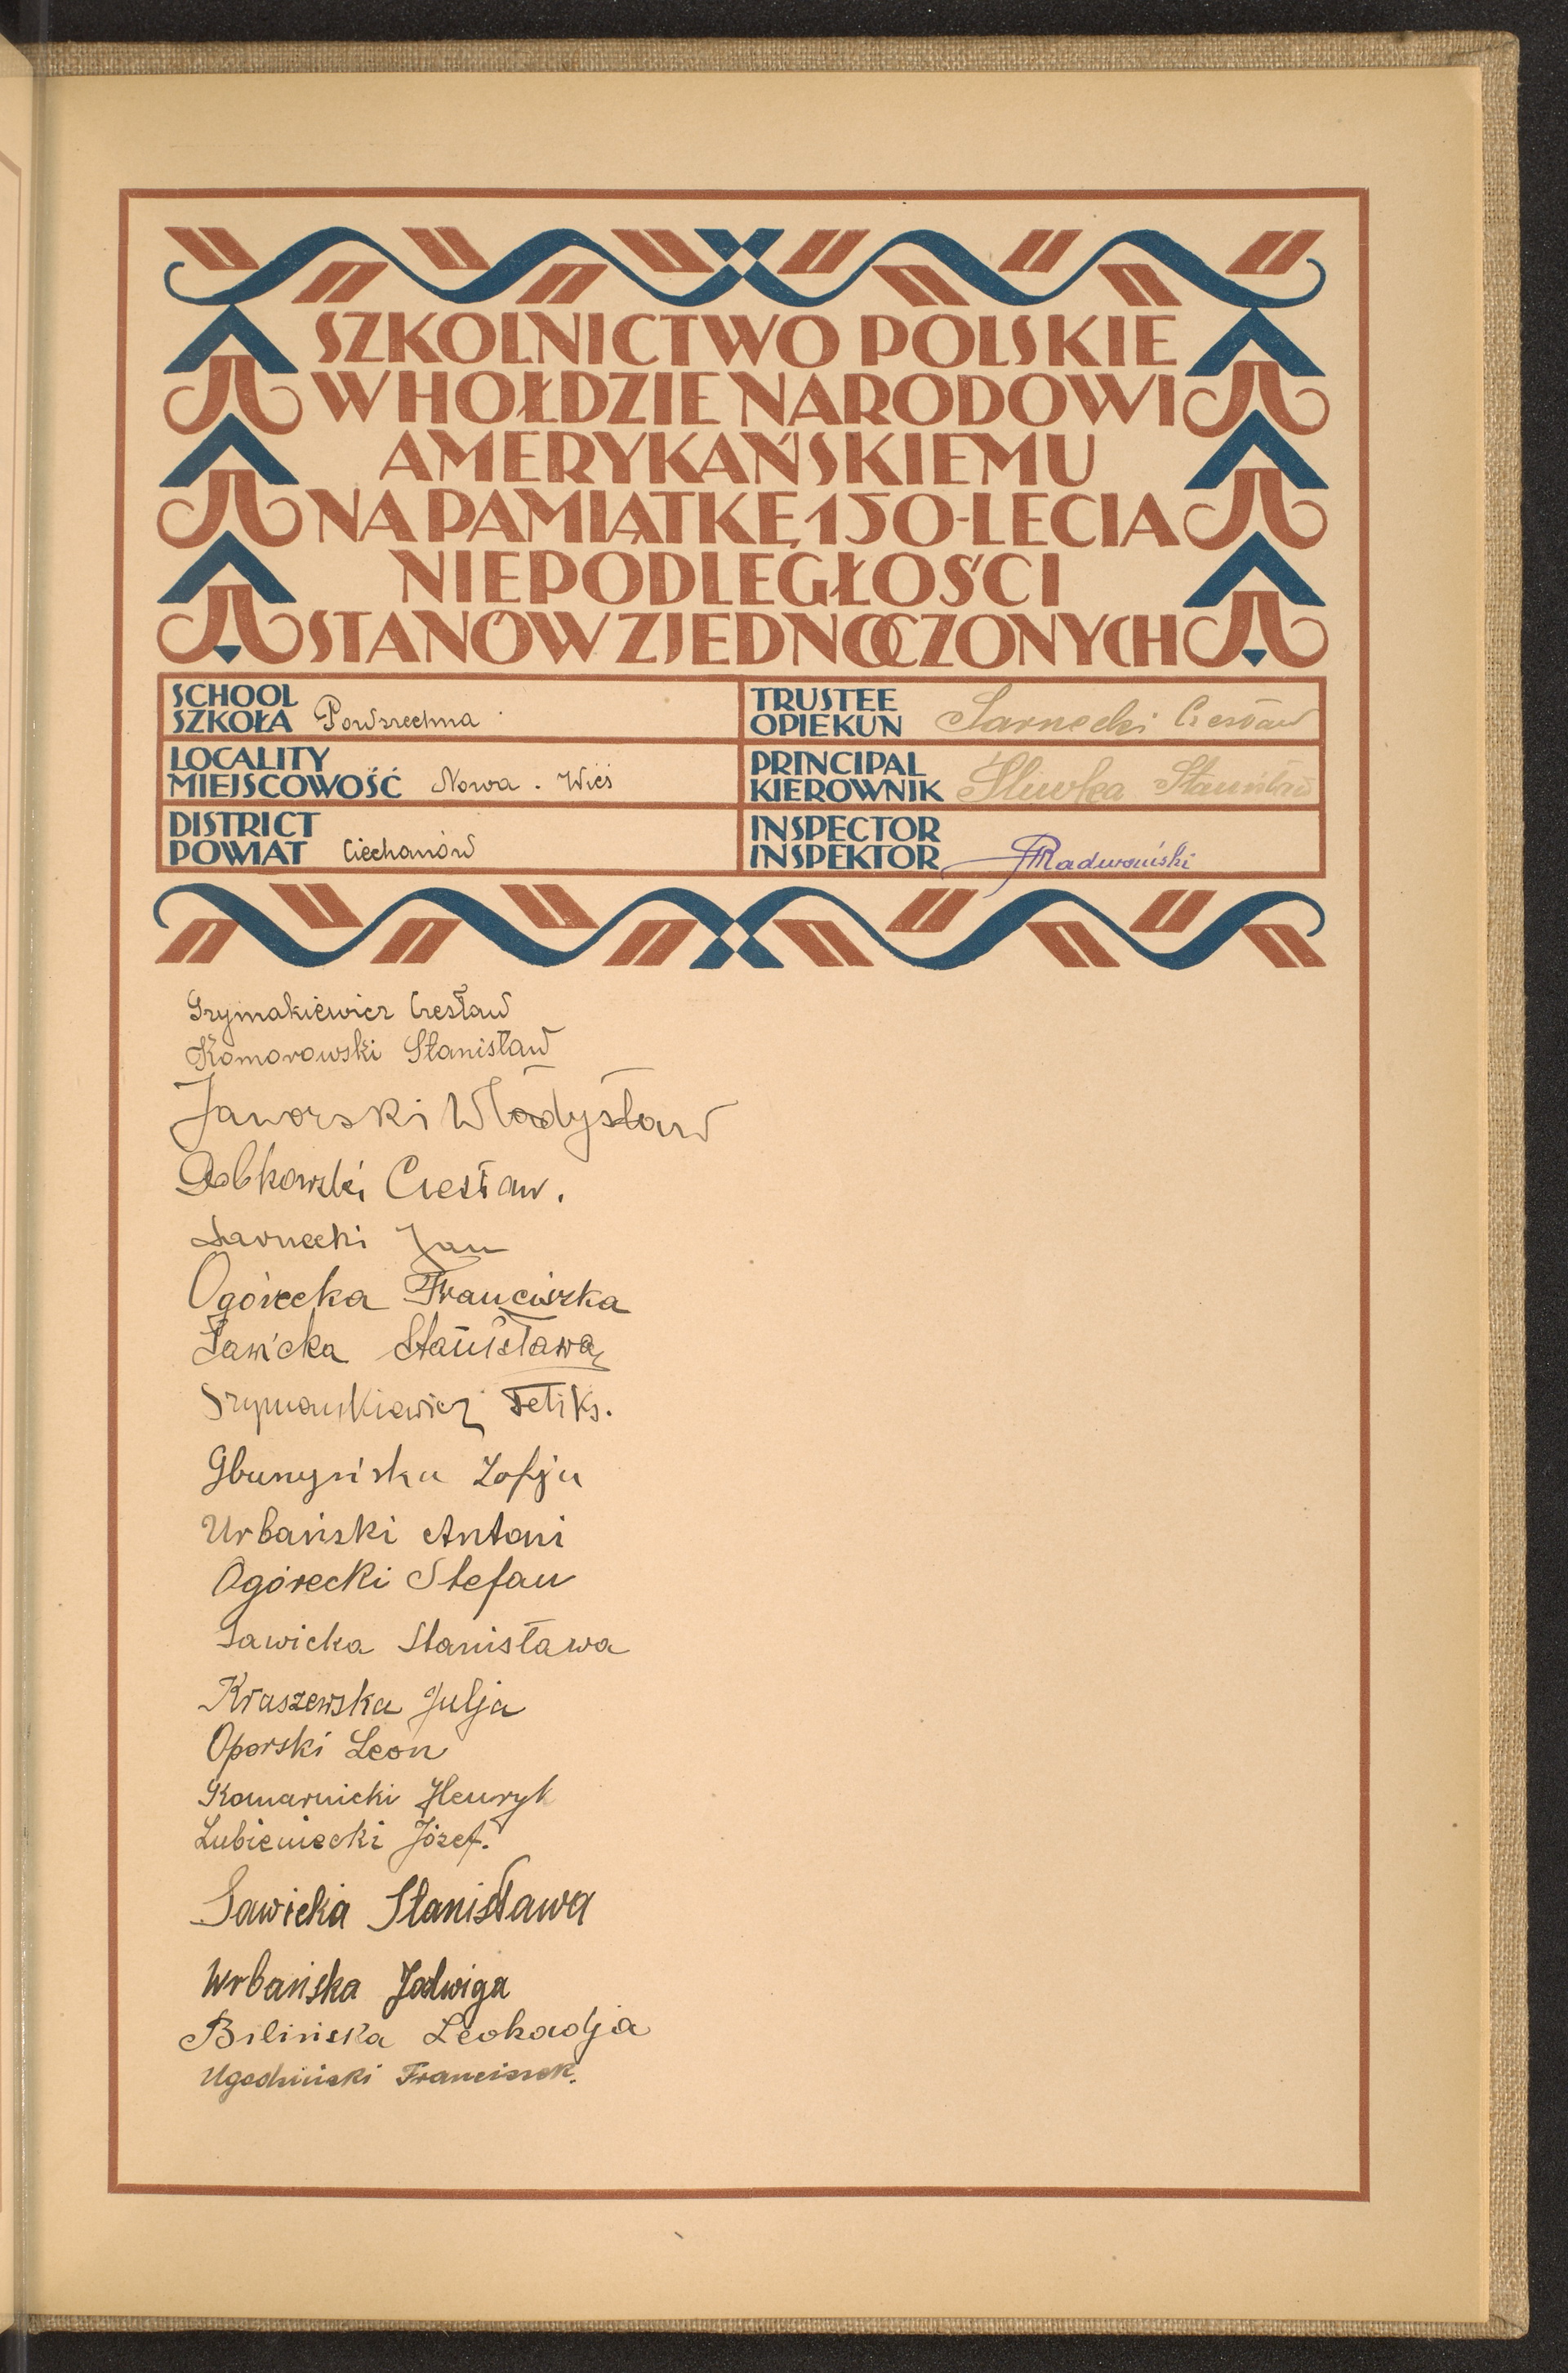 SZKOLNICTWO POLSKIE
W HOŁDZIE NARODOWI
AMERYKAŃSKIEMU
NA PAMIĄTKĘ 150-LECIA
NIEPODLEGŁOŚCI
STANÓW ZJEDNOCZONYCH
SCHOOL
SZKOŁA Powszechna
TRUSTEE
OPIEKUN Sarnecki Czesław
LOCALITY
MIEJSCOWOŚĆ Nowa. Wieś
PRINCIPAL
KIEROWNIK Śliwka Stanisław
DISTRICT
POWIAT Ciechanów
INSPECTOR
INSPEKTOR Radwański
Grymakiewicz Czesław
Komorowski Stanisław
Jaworski Władysław
Czesław.
Sarnecki Jan
Ogórecka Franciszka
Sawicka Stanisława
Szymankiewicz Feliks.
Zofja
Urbański Antoni
Ogórecki Stefan
Sawicka Stanisława
Kraszewska Julja
Oporski Leon
Komarnicki Henryk
Lubieniecki Józef.
Sawicka Stanisława
Urbańska Jadwiga
Bilińska Leokadja
Ugodziński Franciszek.